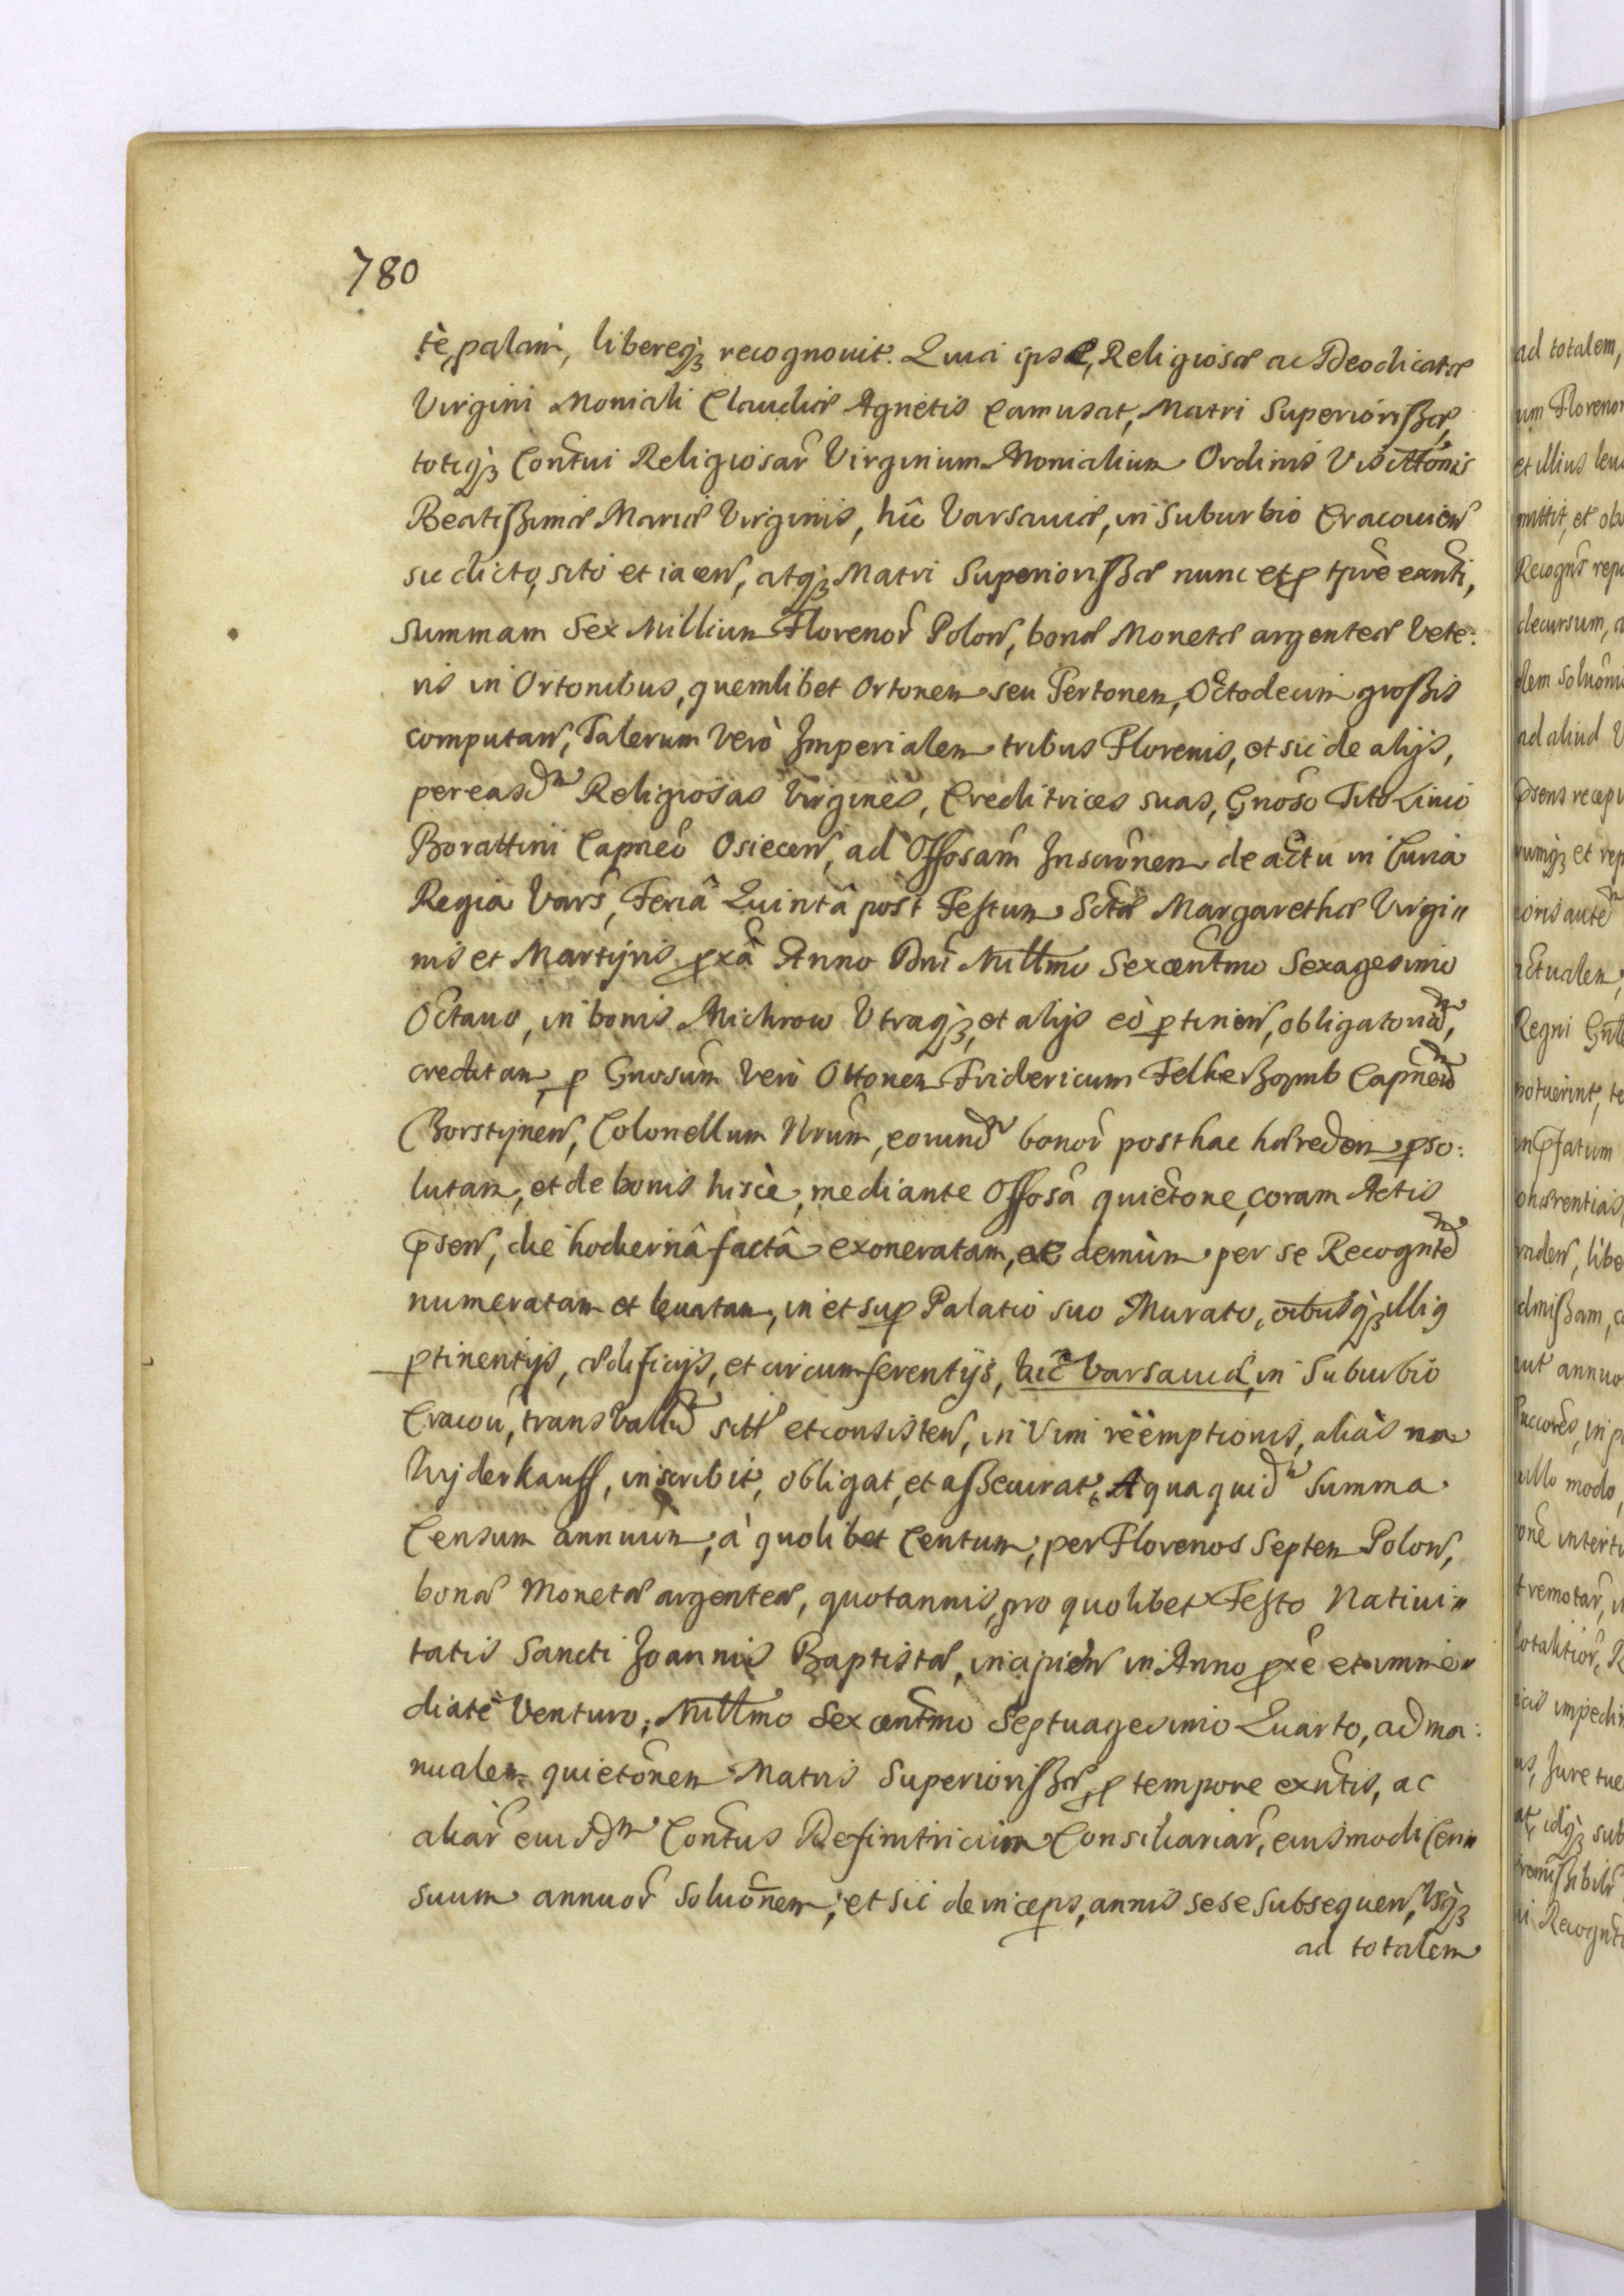 780
tè, palam, libereqȝ recognouit. Quia ipse, Religiosæ ac Deodicatæ
Virgini Moniali Claudiæ Agnetis Camusat, Matri Superiorissæ,
totiqȝ Con̄tui Religiosar̄ Virginium Monialium Ordinis Visittōnis
Beatissimæ Mariæ Virginis, hîc Varsauiæ, in Suburbio Cracouien̄
sic dicto, sito et iacen̄, atqȝ Matri Superiorissæ nunc et ꝓ tp̄re exn̄ti,
summam Sex Millium Florenor̄ Polon̄, bonæ Monetæ argenteæ Vete:
ris in Ortonibus, quemlibet Ortonem seu Fertonem, Octodecim grossis
computan̄, Talerum Verò Imperialem tribus Florenis, et sic de alijs,
per easdem Religiosas Virgines, Creditrices suas, Gnoso Tito Liuio
Borattini Capneo Osiecen̄, ad Offosam Inscrōnem de actu in Curia
Regia Vars̄, Feriâ Quintâ post Festum Sctæ Margarethæ Virgi〃
nis et Martyris ꝓxâ Anno Dni Millmo Sexcentmo Sexagesimo
Octauo, in bonis Michrow Vtraqȝ, et alijs eò ꝑtinen̄, obligatoriè,
creditam, ꝑ Gnosum Verò Ottonem Fridericum Felkerzamb Capneum
Borstynen̄, Colonellum Nrum, eorundem bonor̄ posthac hæredem ꝑso:
lutam, et de bonis hiscè, mediante Offosâ quietōne, coram Actis
p̄sen̄, die hodiernâ factâ exoneratam, ac demùm per se Recogntem
numeratam et leuatam, in et suꝑ Palatio suo Murato, oībusqȝ illiꝯ
ꝑtinentijs, ædificijs, et circumferentijs, hîc Varsauiæ, in Suburbio
Cracou, trans Vallum sitt et consisten̄, in Vim rëemptionis, aliàs na
Wyderkauff, inscribit, obligat, et assecurat, A qua quidem Summa
Censum annuum, à quolibet Centum, per Florenos Septem Polon̄,
bonæ Monetæ argenteæ, quotannis, pro quolibet Festo Natiui〃
tatis Sancti Joannis Baptistæ, incipien̄ in Anno ꝓxè et imme〃
diatè Venturo, Millmo Sexcentmo Septuagesimo Quarto, ad ma:
nualem quietōnem Matris Superiorissæ, ꝓ tempore exn̄tis, ac
aliar̄ eiusdem Con̄tus Definitricium Consiliariar̄, eiusmodi Cen〃
suum annuor̄ soluōnem, et sic deinceps, annis sese subsequen̄, vsqȝ
ad totalem
ad totalem,
et illius leu
mittit, et
decursum, a
dem soluōn
ad aliud V
p̄sens recep
actualem,
Regni Gn
potuerint, te
ohærentias,
admissam, c
aut annuo
ullo modo,
ias impedi
us, Jure tue